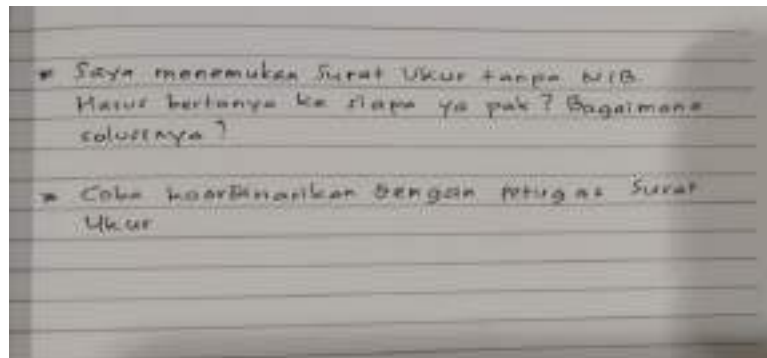 * Saya menemukan Surat Ukur tanpa NIB.
Harus bertanya ke siapa ya pak? Bagaimana
solusinya?
* Coba koordinasikan dengan petugas Surat
Ukur